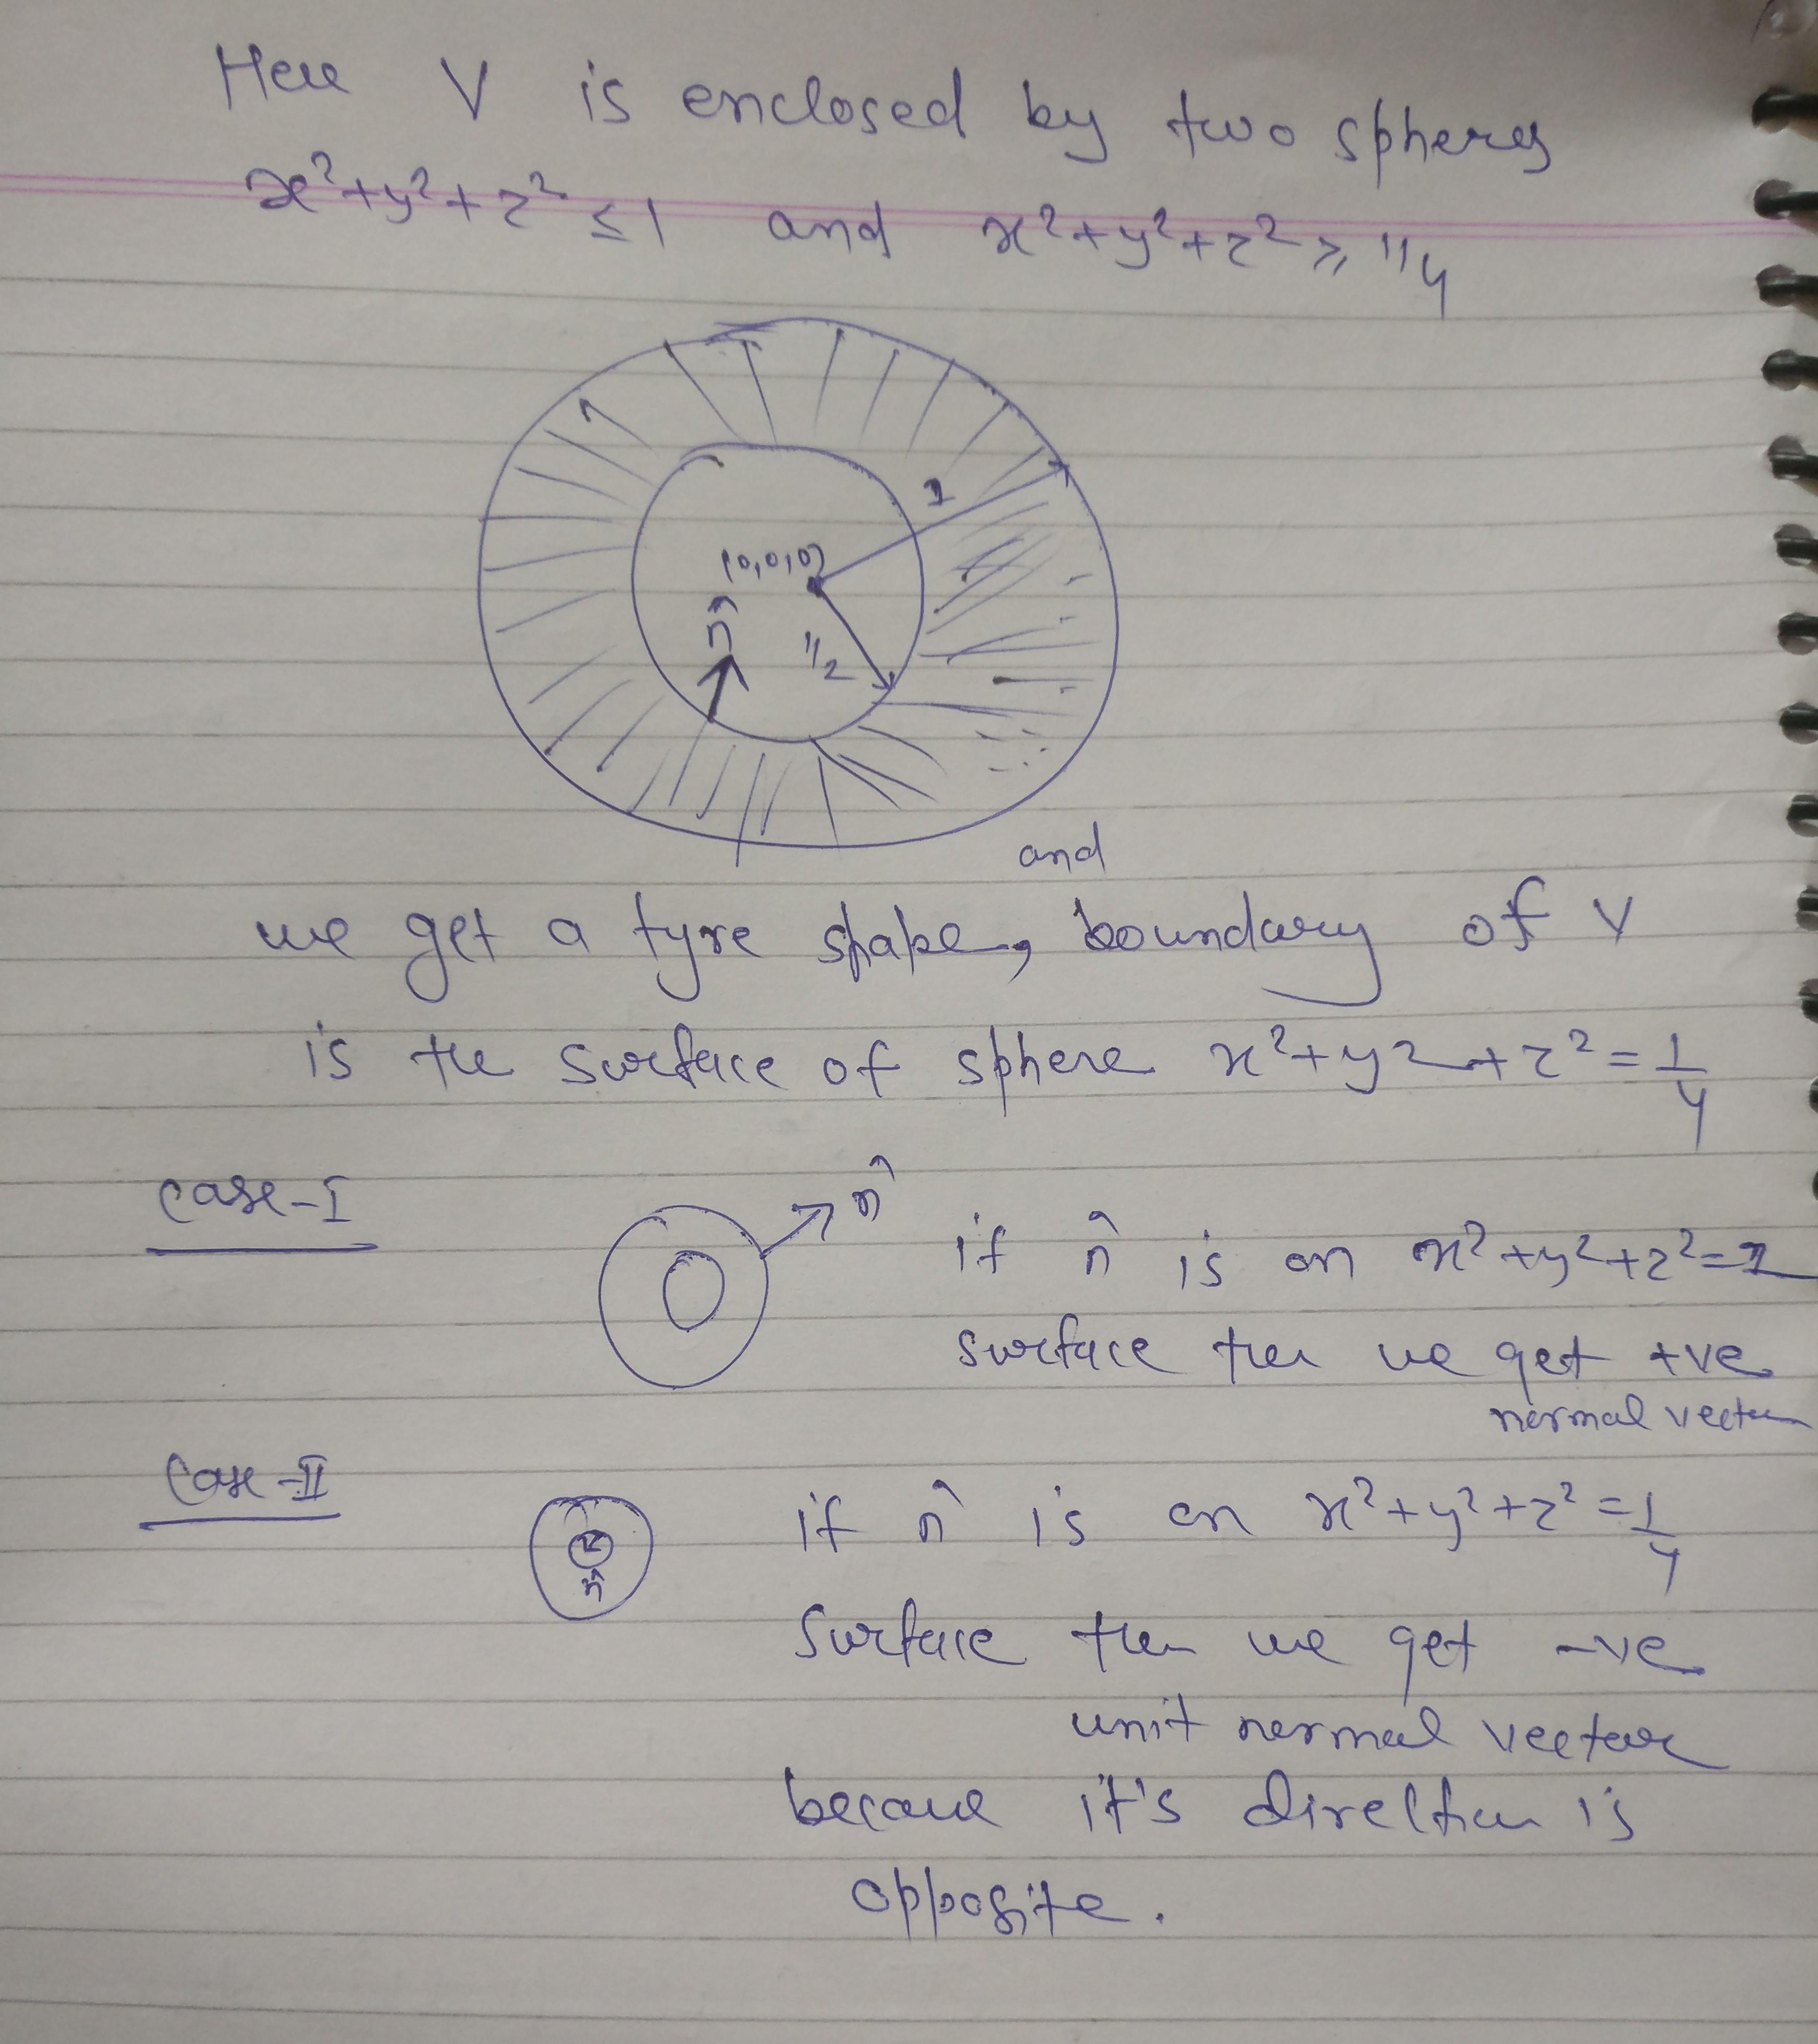 Here V is enclosed by two spheres
x²+y²+z² ≤ 1 and x²+y²+z² ≥ 1/4
1
(0,0,0)
n̂
1/2
and
we get a tyre shape, boundary of V
is the surface of sphere x²+y²+z² = 1/4
case-I
n̂
if n̂ is on x²+y²+z²=1
surface then we get +ve
normal vector
Case-II
n̂
if n̂ is on x²+y²+z² = 1/4
surface then we get -ve
unit normal vector
because it's direction is
opposite.